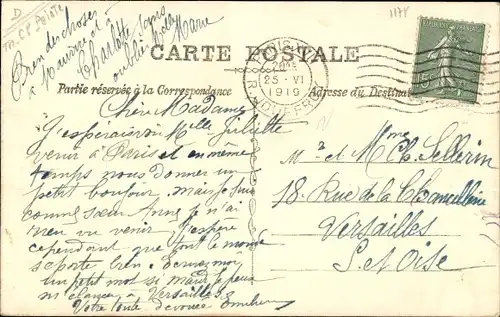 D
TM.C.P. Pelote
1178
Bien des choses
à Maurice et à
Charlotte sans
oublier
Marie
CARTE POSTALE
Partie réservée à la Correspondance
Adresse du Destinat
25 - VI
1919
15c
Chère Madame
J'espérais voir Melle Juliette
venir à Paris et en même
temps nous donner un
petit bonjour. mais je suis
comme sœur Anne je n'ai
rien vu venir. J'espère
cependant que tout le monde
se porte bien. Donnez moi
un petit mot si mardi je peux
m'élancer à Versailles
Votre toute dévouée
Mr et Mme Ch. Sellerin
18 Rue de la Chancellerie
Versailles
S. et Oise